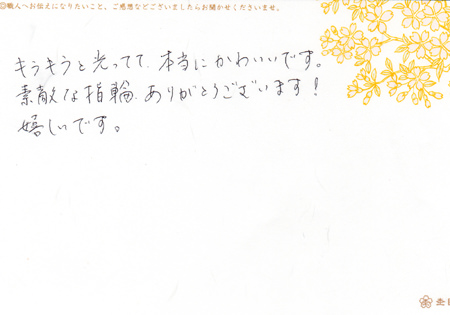 ◎職人へお伝えになりたいこと、ご感想などございましたらお聞かせくださいませ。
キラキラと光ってて、本当にかわいいです。
素敵な指輪、ありがとうございます！
嬉しいです。